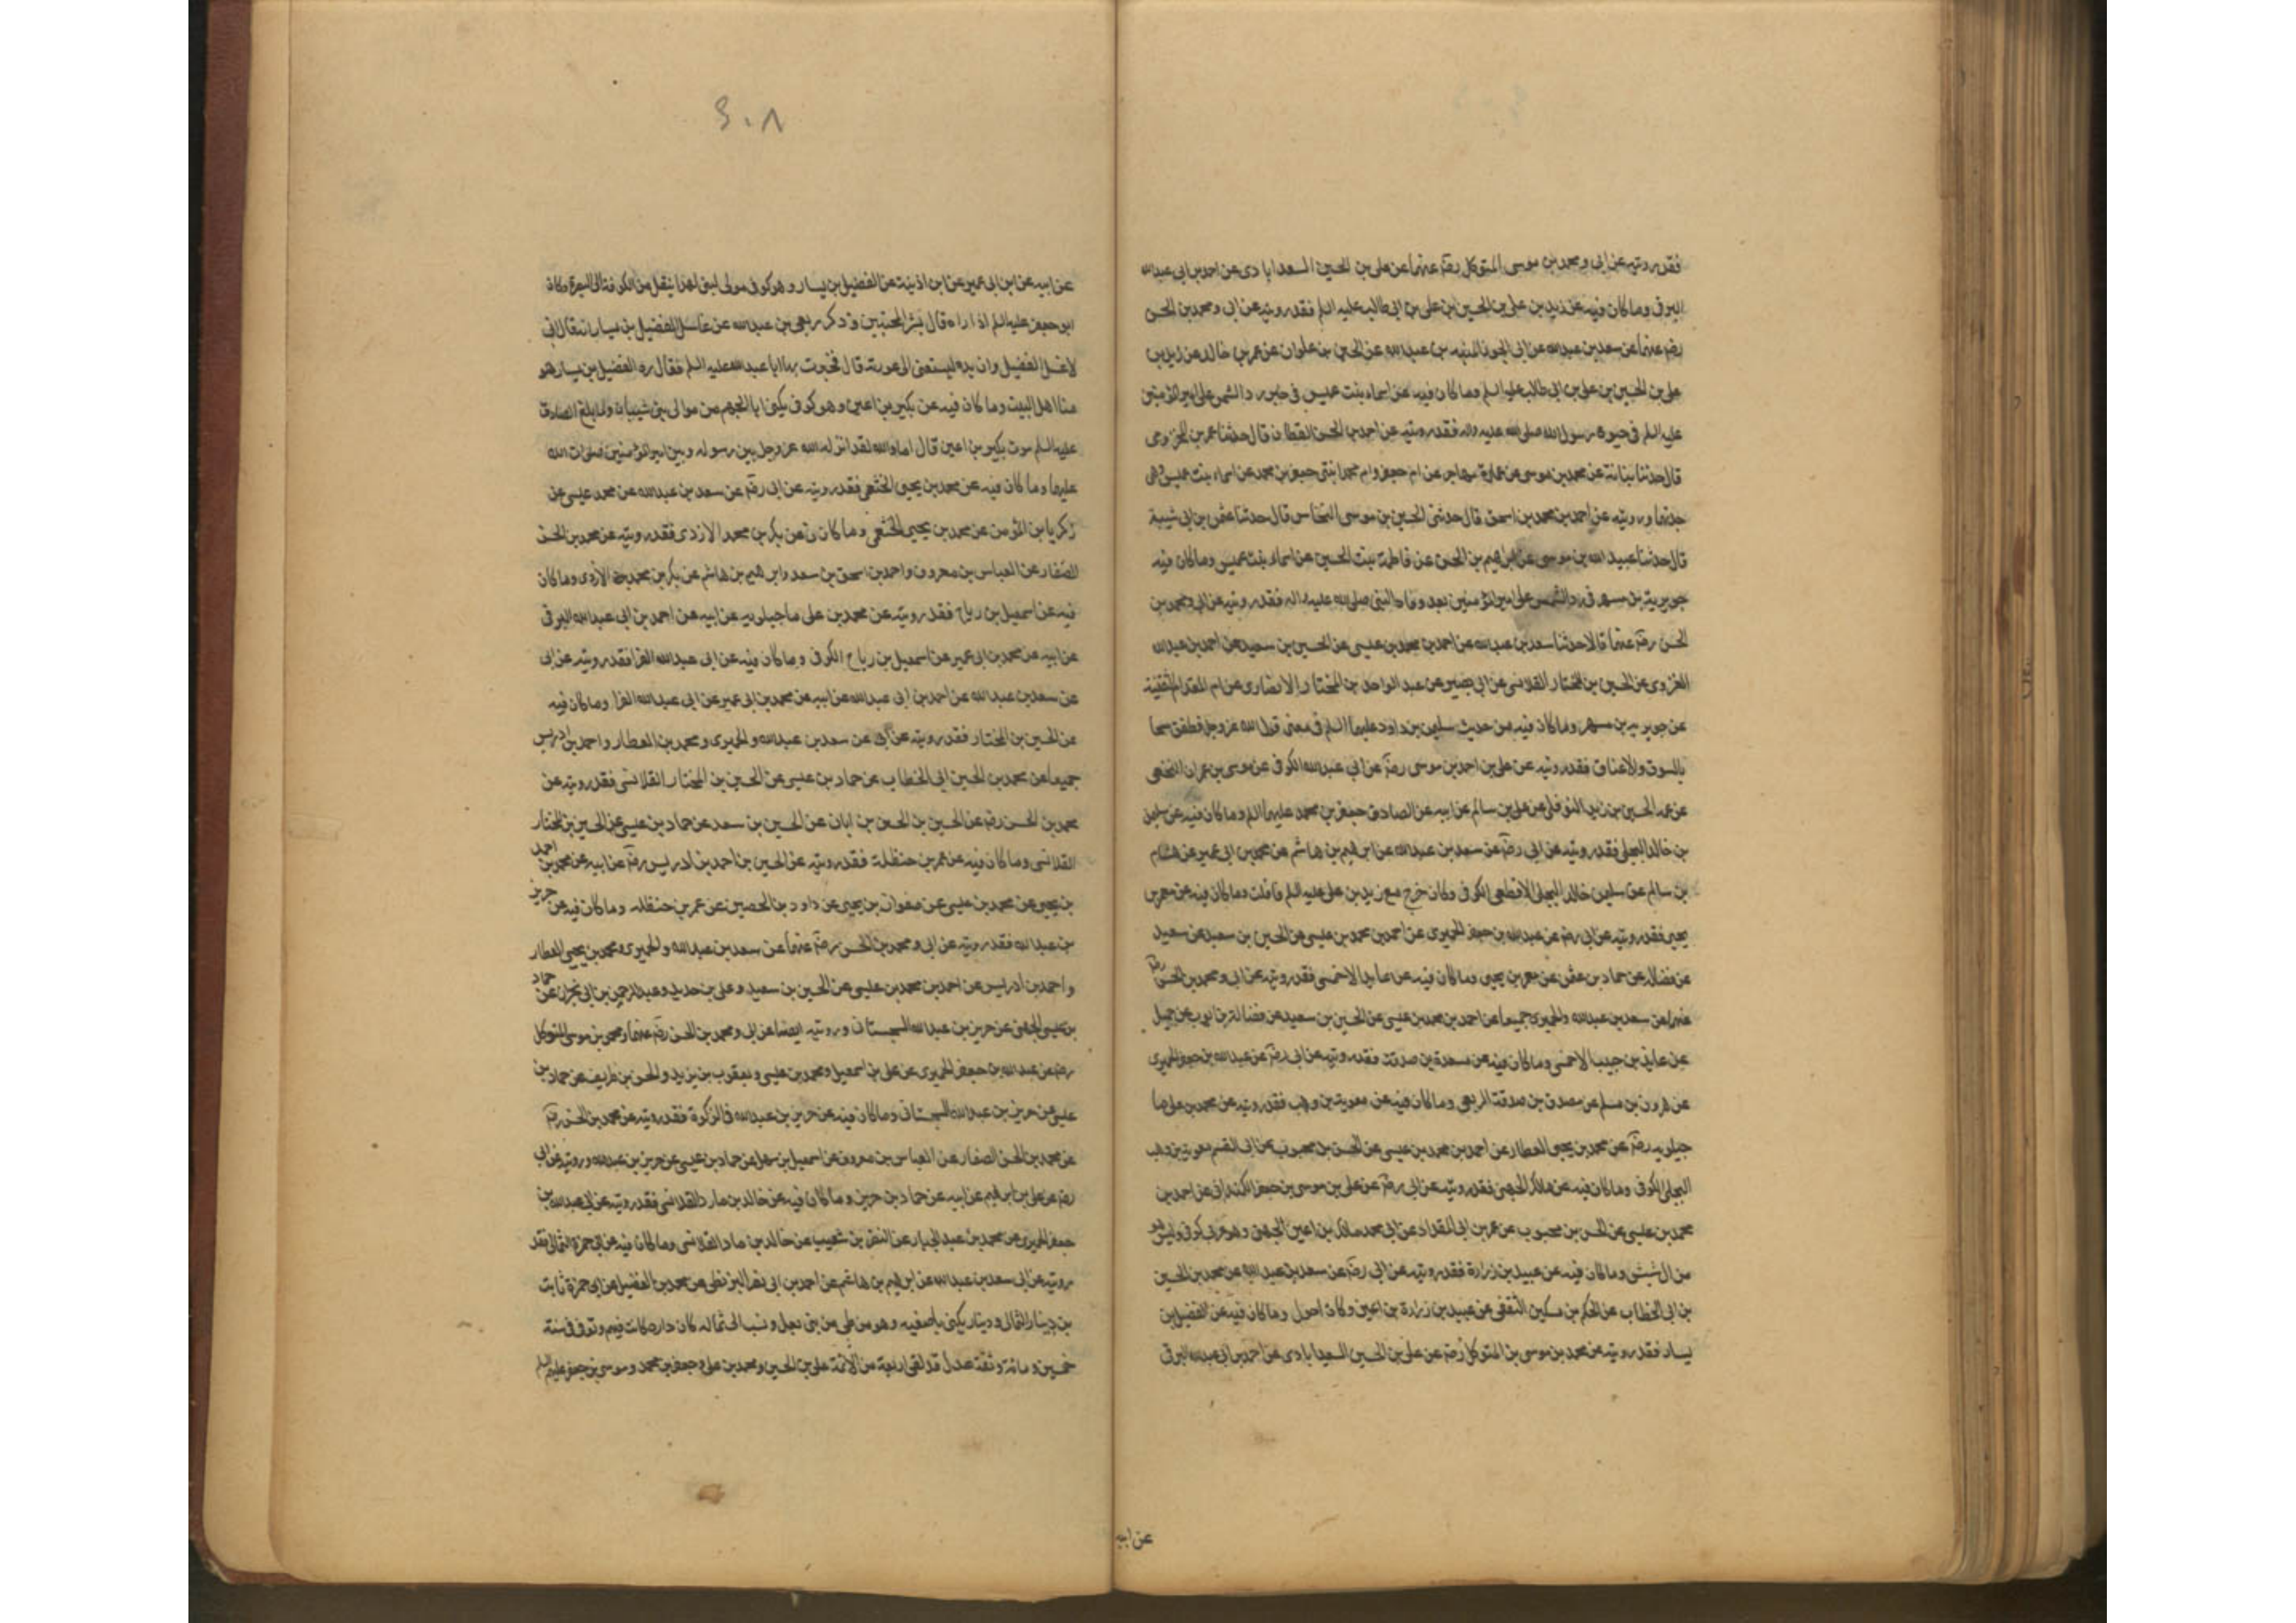 فقد رويته عن ابى ومحمد بن موسى المتوكل رضه عنهما عن على بن الحسين السعدابادى عن احمد بن ابى عبدالله
البرقى وما كان فيه عن زيد بن على بن الحسين بن على بن ابى طالب عليه السلم فقد رويته عن ابى ومحمد بن الحسن
رضه عنهما عن سعد بن عبدالله عن ابى الجوزا المنبه بن عبدالله عن الحسين بن علوان عن عمرو بن خالد عن زيد بن
على بن الحسين بن على بن ابى طالب عليه السلم وما كان فيه عن اسماء بنت عميس فى خبر رد الشمس على امير المؤمنين
عليه السلم فى حيوة رسول الله صلى الله عليه واله فقد رويته عن احمد بن الحسن القطان قال حدثنا عمر بن
قال حدثنا بنانة عن محمد بن موسى عن عمارة مهاجر عن ام جعفر وام محمد ابنتى جعفر بن محمد عن اسماء بنت عميس وهى
جدتهما ورويته عن احمد بن محمد بن اسحق قال حدثنى الحسين بن موسى النخاس قال حدثنا عثمن بن ابى شيبة
قال حدثنا عبيد الله بن موسى عن ابرهيم بن الحسن عن فاطمة بنت الحسين عن اسماء بنت عميس وما كان فيه
جويرية بن مسهر فى رد الشمس على امير المؤمنين بعد وفاة النبى صلى الله عليه واله فقد رويته عن ابى ومحمد بن
الحسن رضه عنهما قالا حدثنا سعد بن عبدالله عن احمد بن محمد بن عيسى عن الحسين بن سعيد عن احمد بن عبدالله
القروى عن الحسين بن المختار القلانسى عن ابى بصير عن عبد الواحد بن المختار الانصارى عن ام المقدام الثقفية
عن جويرية بن مسهر وما كان فيه من حديث سليمن بن داود عليهما السلم فى معنى قول الله عز وجل فطفق مسحا
بالسوق والاعناق فقد رويته عن على بن احمد بن موسى رضه عن ابى عبدالله الكوفى عن موسى بن عمران النخعى
عن عمه الحسين بن زيد النوفلى عن على بن سالم عن ابيه عن الصادق جعفر بن محمد عليهما السلم وما كان فيه عن سليمن
بن خالد البجلى فقد رويته عن ابى رضه عن سعد بن عبدالله عن ابرهيم بن هاشم عن محمد بن ابى عمير عن هشام
بن سالم عن سليمن خالد البجلى الاقطع الكوفى وكان خرج مع زيد بن على عليه السلم فافلت وما كان فيه عن معمر بن
يحيى فقد رويته عن ابى رضه عن عبدالله بن جعفر الحميرى عن احمد بن محمد بن عيسى عن الحسين بن سعيد عن سعيد
عن فضاله عن حماد بن عثمن عن معمر بن يحيى وما كان فيه عن عايذ الاحمسى فقد رويته عن ابى ومحمد بن الحسن رضه
عنهما عن سعد بن عبدالله والحميرى جميعا عن احمد بن محمد بن عيسى عن الحسين بن سعيد عن فضالة بن ايوب عن جميل
عن عايذ بن حبيب الاحمسى وما كان فيه عن مسعدة بن صدقة فقد رويته عن ابى رضه عن عبدالله بن جعفر الحميرى
عن هرون بن مسلم عن مصدق بن صدقة الربعى وما كان فيه عن معوية بن وهب فقد رويته عن محمد بن على ما
جيلويه رضه عن محمد بن يحيى العطار عن احمد بن محمد بن عيسى عن الحسن بن محبوب عن ابى القسم معوية بن وهب
البجلى الكوفى وما كان فيه عن مالك الجهنى فقد رويته عن ابى رضه عن على بن موسى بن جعفر الكمندانى عن احمد بن
محمد بن عيسى عن الحسن بن محبوب عن عمرو بن ابى المقداد عن ابى محمد مالك بن اعين الجهنى وهو عربى كوفى وليس هو
من ال سنسن وما كان فيه عن عبيد بن زرارة فقد رويته عن ابى رضه عن سعد بن عبدالله عن محمد بن الحسين
بن ابى الخطاب عن الحكم بن مسكين الثقفى عن عبيد بن زرارة بن اعين وكان احول وما كان فيه عن الفضيل بن
يسار فقد رويته عن محمد بن موسى بن المتوكل رضه عن على بن الحسين السعدابادى عن احمد بن ابى عبدالله البرقى
عن ابيه
٢٠٨
عن ابيه عن ابن ابى عمير عن ابن اذينة عن الفضيل بن يسار وهو كوفى مولى لبنى نهد انتقل من الكوفة الى البصرة وكان
ابو جعفر عليه السلم اذا راه قال بشر المخبتين وذكر ربعى بن عبدالله عن غاسل الفضيل بن يسار انه قال انى
لاغسل الفضيل وان يده لتسبقنى الى عورته قال فخبرت بها ابا عبدالله عليه السلم فقال رحم الفضيل بن يسار هو
منا اهل البيت وما كان فيه عن بكير بن اعين وهو كوفى يكنى ابا الجهم من موالى بنى شيبان ولما بلغ الصادق
عليه السلم موت بكير بن اعين قال اما والله لقد انزله الله عز وجل بين رسوله وبين امير المؤمنين صلوات الله
عليهما وما كان فيه عن محمد بن يحيى الخثعمى فقد رويته عن ابى رضه عن سعد بن عبدالله عن محمد عيسى عن
زكريا بن المؤمن عن محمد بن يحيى الخثعمى وما كان عن بكر بن محمد الازدى فقد رويته عن محمد بن الحسن
الصفار عن العباس بن معروف واحمد بن اسحق بن سعد وابرهيم بن هاشم عن بكر بن محمد الازدى وما كان
فيه عن اسمعيل بن رباح فقد رويته عن محمد بن على ماجيلويه عن ابيه عن احمد بن ابى عبدالله البرقى
عن ابيه عن محمد بن ابى عمير عن اسمعيل بن رباح الكوفى وما كان فيه عن ابى عبدالله الفرا فقد رويته عن ابى
عن سعد بن عبدالله عن احمد بن ابى عبدالله عن ابيه عن محمد بن ابى عمير عن ابى عبدالله الفرا وما كان فيه
عن الحسين بن المختار فقد رويته عن ابى عن سعد بن عبدالله والحميرى ومحمد بن العطار واحمد بن ادريس
جميعا عن محمد بن الحسين ابى الخطاب عن حماد بن عيسى عن الحسين بن المختار القلانسى فقد رويته عن
محمد بن الحسن رضه عن الحسين بن الحسن بن ابان عن الحسين بن سعد عن حماد بن عيسى عن الحسين بن المختار
القلانسى وما كان فيه عن عمر بن حنظلة فقد رويته عن الحسين بن احمد بن ادريس رضه عن ابيه عن محمد بن احمد
بن يحيى عن محمد بن عيسى عن صفوان بن يحيى عن داود بن الحصين عن عمر بن حنظله وما كان فيه عن حريز
بن عبدالله فقد رويته عن ابى ومحمد بن الحسن رضه عنهما عن سعد بن عبدالله والحميرى ومحمد بن يحيى العطار
واحمد بن ادريس عن احمد بن محمد بن عيسى عن الحسين بن سعيد وعلى بن حديد وعبد الرحمن بن ابى نجران عن حماد
بن عيسى الجهنى عن حريز بن عبدالله السجستانى ورويته ايضا عن ابى ومحمد بن الحسن رضه عنهما ومحمد بن موسى المتوكل
رضه عن عبدالله بن جعفر الحميرى عن على بن اسمعيل ومحمد بن عيسى ويعقوب بن يزيد والحسن بن ظريف عن حماد بن
عيسى عن حريز بن عبدالله السجستانى وما كان فيه عن حريز بن عبدالله فى الزكوة فقد رويته عن محمد بن الحسن رضه
عن محمد بن الحسن الصفار عن العباس بن معروف عن اسمعيل بن سهل عن حماد بن عيسى عن حريز بن عبدالله ورويته عن ابى
رضه عن على بن ابرهيم عن ابيه عن حماد بن حريز وما كان فيه عن خالد بن ماد القلانسى فقد رويته عن ابى عبدالله بن
جعفر الحميرى عن محمد بن عبد الجبار عن النضر بن شعيب عن خالد بن ماد القلانسى وما كان فيه عن ابى حمزة الثمالى فقد
رويته عن ابى سعد بن عبدالله عن ابرهيم بن هاشم عن احمد بن ابى نصر البزنطى عن محمد بن الفضيل عن ابى حمزة ثابت
بن دينار الثمالى ودينار يكنى بابى صفيه وهو من طى من بنى ثعل ونسب الى ثماله كان داره كانت فيهم وتوفى فى سنة
خمسين ومائة وثقة عدل قد لقى اربعة من الائمة على بن الحسين ومحمد بن على وجعفر بن محمد وموسى بن جعفر عليهم السلم